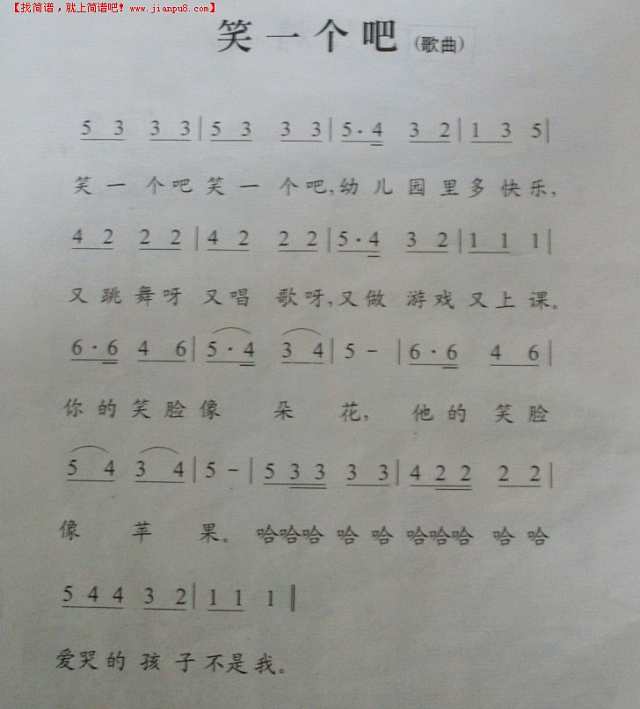 【找简谱，就上简谱吧！www.jianpu8.com】
笑一个吧（歌曲）
5 3 3 3 | 5 3 3 3 | 5 · 4 3 2 | 1 3 5 |
笑一个吧笑一个吧，幼儿园里多快乐，
4 2 2 2 | 4 2 2 2 | 5 · 4 3 2 | 1 1 1 |
又跳舞呀又唱歌呀，又做游戏又上课。
6 · 6 4 6 | 5 · 4 3 4 | 5 － | 6 · 6 4 6 |
你的笑脸像朵花，他的笑脸
5 4 3 4 | 5 － | 5 3 3 3 3 | 4 2 2 2 2 |
像苹果。哈哈哈哈哈哈哈哈哈哈
5 4 4 3 2 | 1 1 1 ‖
爱哭的孩子不是我。